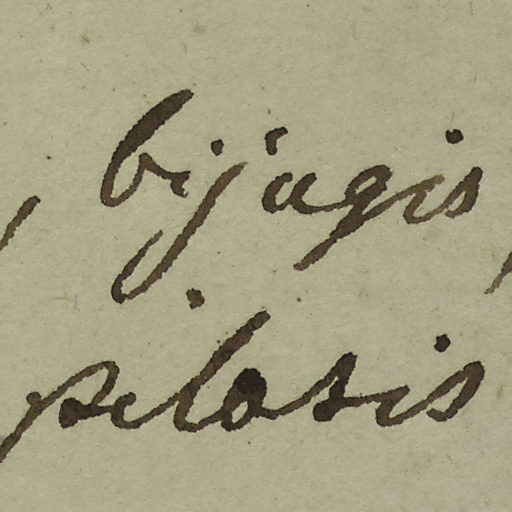 , bijugis
pilosis